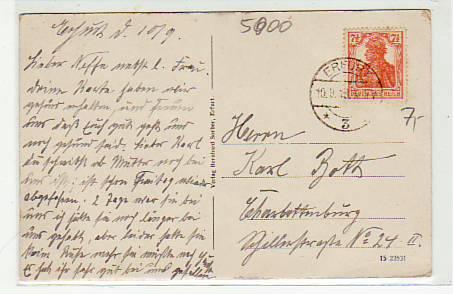 Erfurt d. 10/9.
Lieber Neffe nebst l. Frau.
Deine Karte haben wir
gesund erhalten, und freuen
uns daß Euch gut geht und
noch gesund seid. Lieber Karl
Du schreibst ob Mutter noch bei
uns ist, ist schon Freitag wieder
abgefahren, 2 Tage war sie bei
uns ich hätte sie noch länger bei
uns gehabt, aber leider hatte sie
keine Ruhe mehr sie
Es hat ihr sehr gut bei uns gefallen
Verlag Bernhard Saeber, Erfurt
5900
7½ 7½
DEUTSCHES REICH
ERFURT
10.9.18
* 3
7,-
Herrn
Karl Both
Charlottenburg
Schillerstraße No 24 II.
15 23531